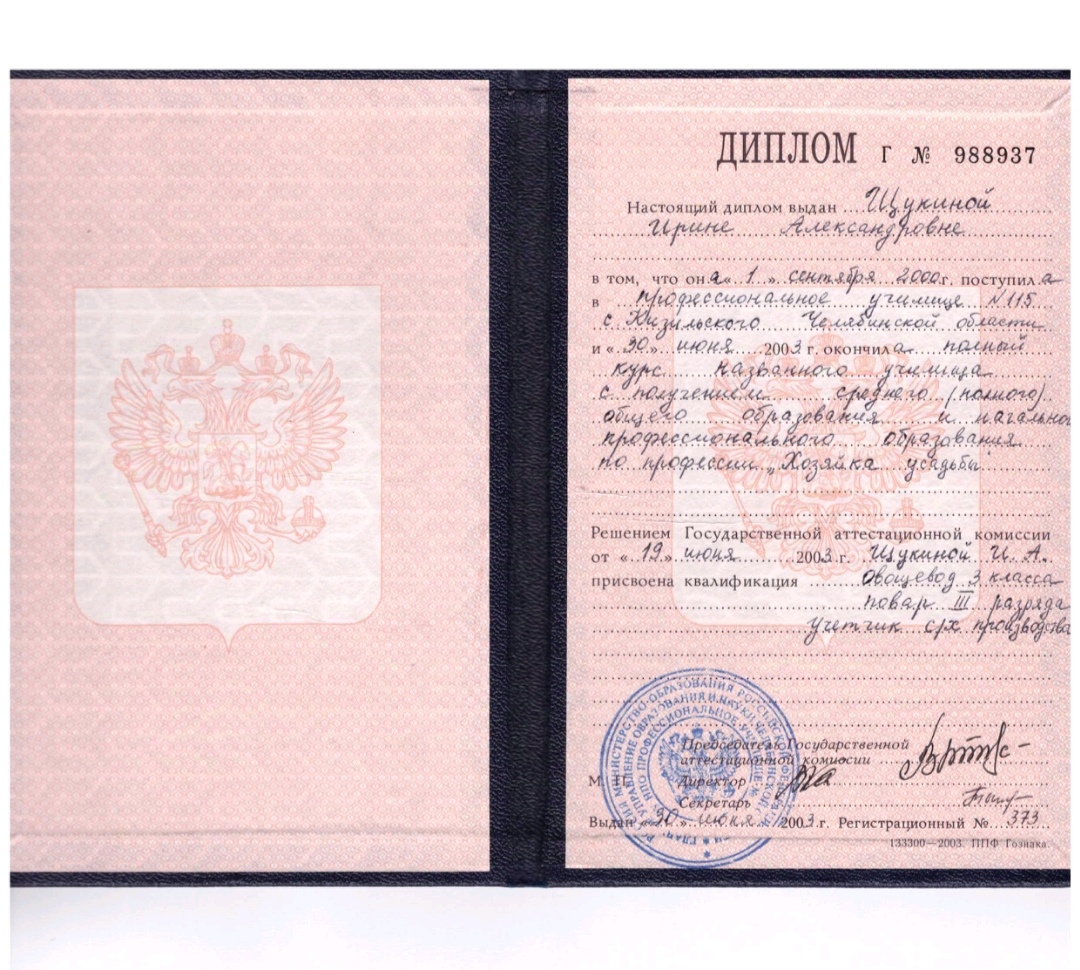 ДИПЛОМ Г № 988937
Настоящий диплом выдан Щукиной
Ирине Александровне
в том, что она « 1 » сентября 2000 г. поступила
в профессиональное училище №115
с. Кизильского Челябинской области
и « 30 » июня 2003 г. окончила полный
курс названного училища
с получением среднего (полного)
общего образования и начально
профессионального образования
по профессии „Хозяйка усадьбы
Решением Государственной аттестационной комиссии
от « 19 » июня 2003 г. Щукиной И. А.
присвоена квалификация Овощевод 3 класса
повар III разряда
учетчик с/х производства
Председатель Государственной
аттестационной комиссии
М. П. Директор
Секретарь
Выдан « 30 » июня 2003 г. Регистрационный № 373
133300—2003. ППФ Гознака.
МИНИСТЕРСТВО ОБРАЗОВАНИЯ РОССИЙСКОЙ
УПРАВЛЕНИЕ ОБРАЗОВАНИЯ И НАУКИ ЧЕЛЯБИНСКОЙ
ПРОФЕССИОНАЛЬНОЕ УЧИЛИЩЕ